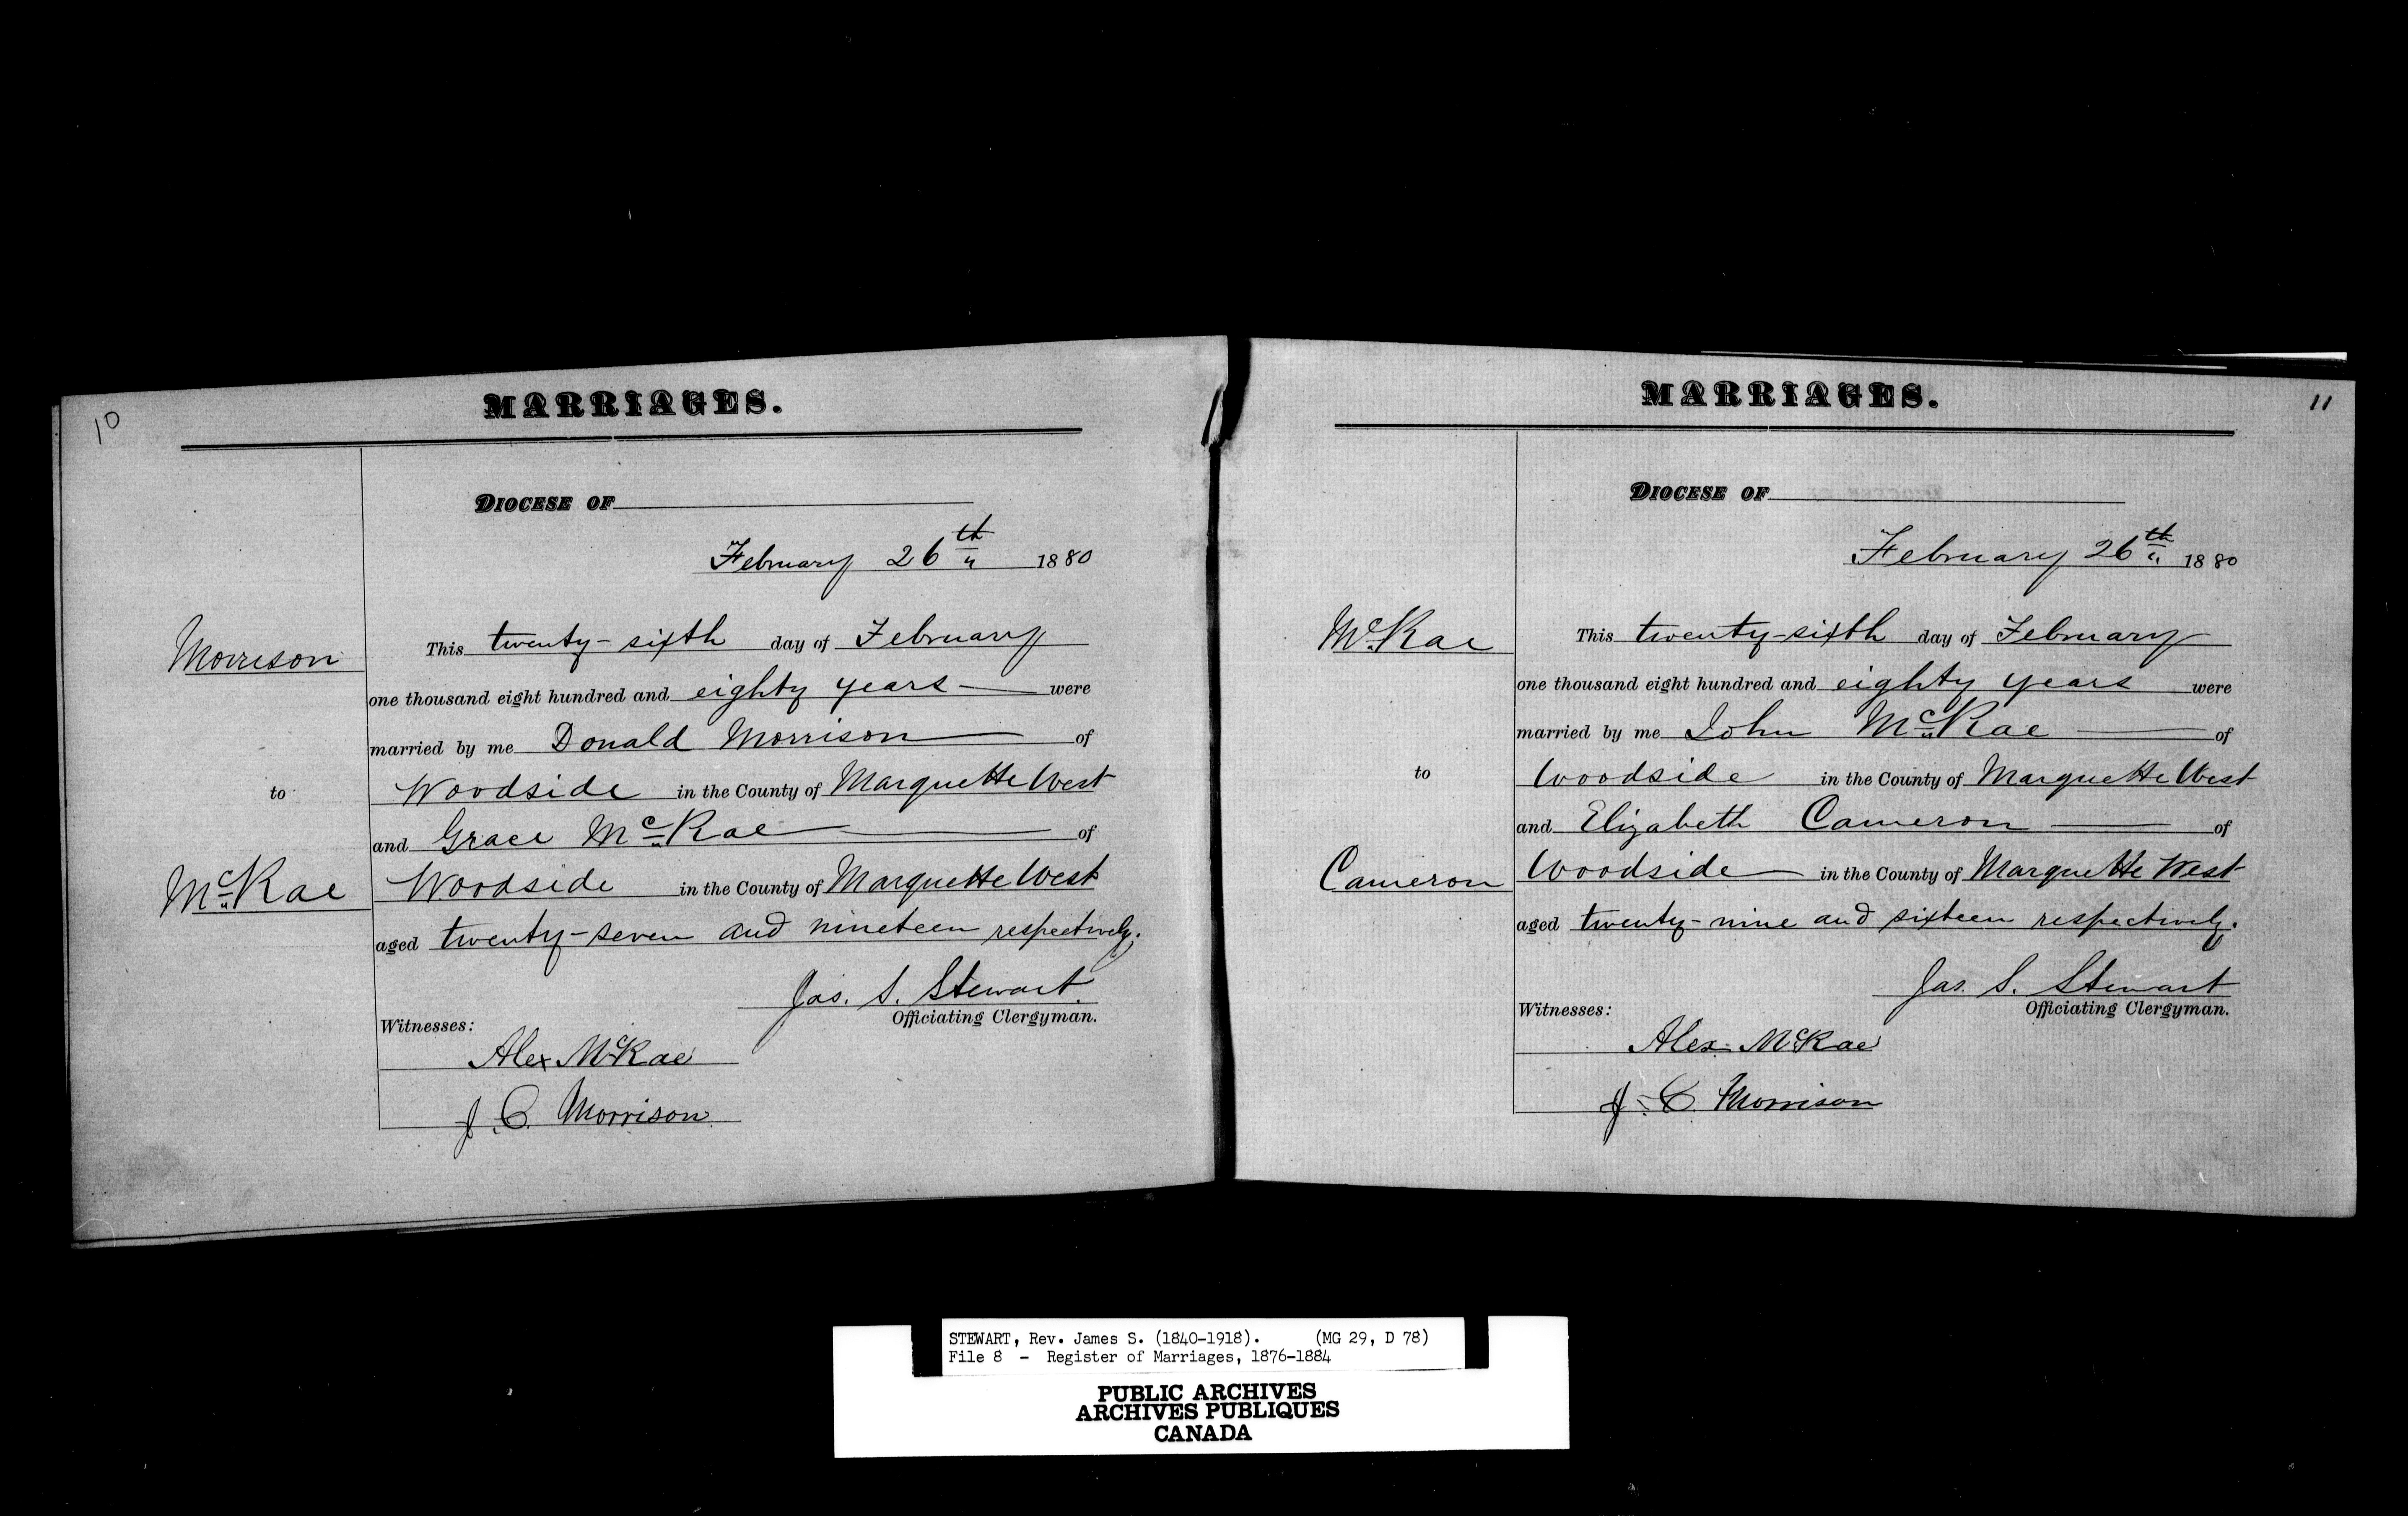 10
MARRIAGES.
DIOCESE OF
February 26th 1880
Morrison
to
McRae
This twenty-sixth day of February
one thousand eight hundred and eighty years were
married by me Donald Morrison of
Woodside in the County of Marquette West
and Grace McRae of
Woodside in the County of Marquette West
aged twenty-seven and nineteen respectively.
Jas. S. Stewart
Officiating Clergyman.
Witnesses:
Alex McRae
J. C. Morrison
11
MARRIAGES.
DIOCESE OF
February 26th 1880
McRae
to
Cameron
This twenty-sixth day of February
one thousand eight hundred and eighty years were
married by me John McRae of
Woodside in the County of Marquette West
and Elizabeth Cameron of
Woodside in the County of Marquette West
aged twenty-nine and sixteen respectively.
Jas. S. Stewart
Officiating Clergyman.
Witnesses:
Alex McRae
J. C. Morrison
STEWART, Rev. James S. (1840-1918). (MG 29, D 78)
File 8 - Register of Marriages, 1876-1884
PUBLIC ARCHIVES
ARCHIVES PUBLIQUES
CANADA